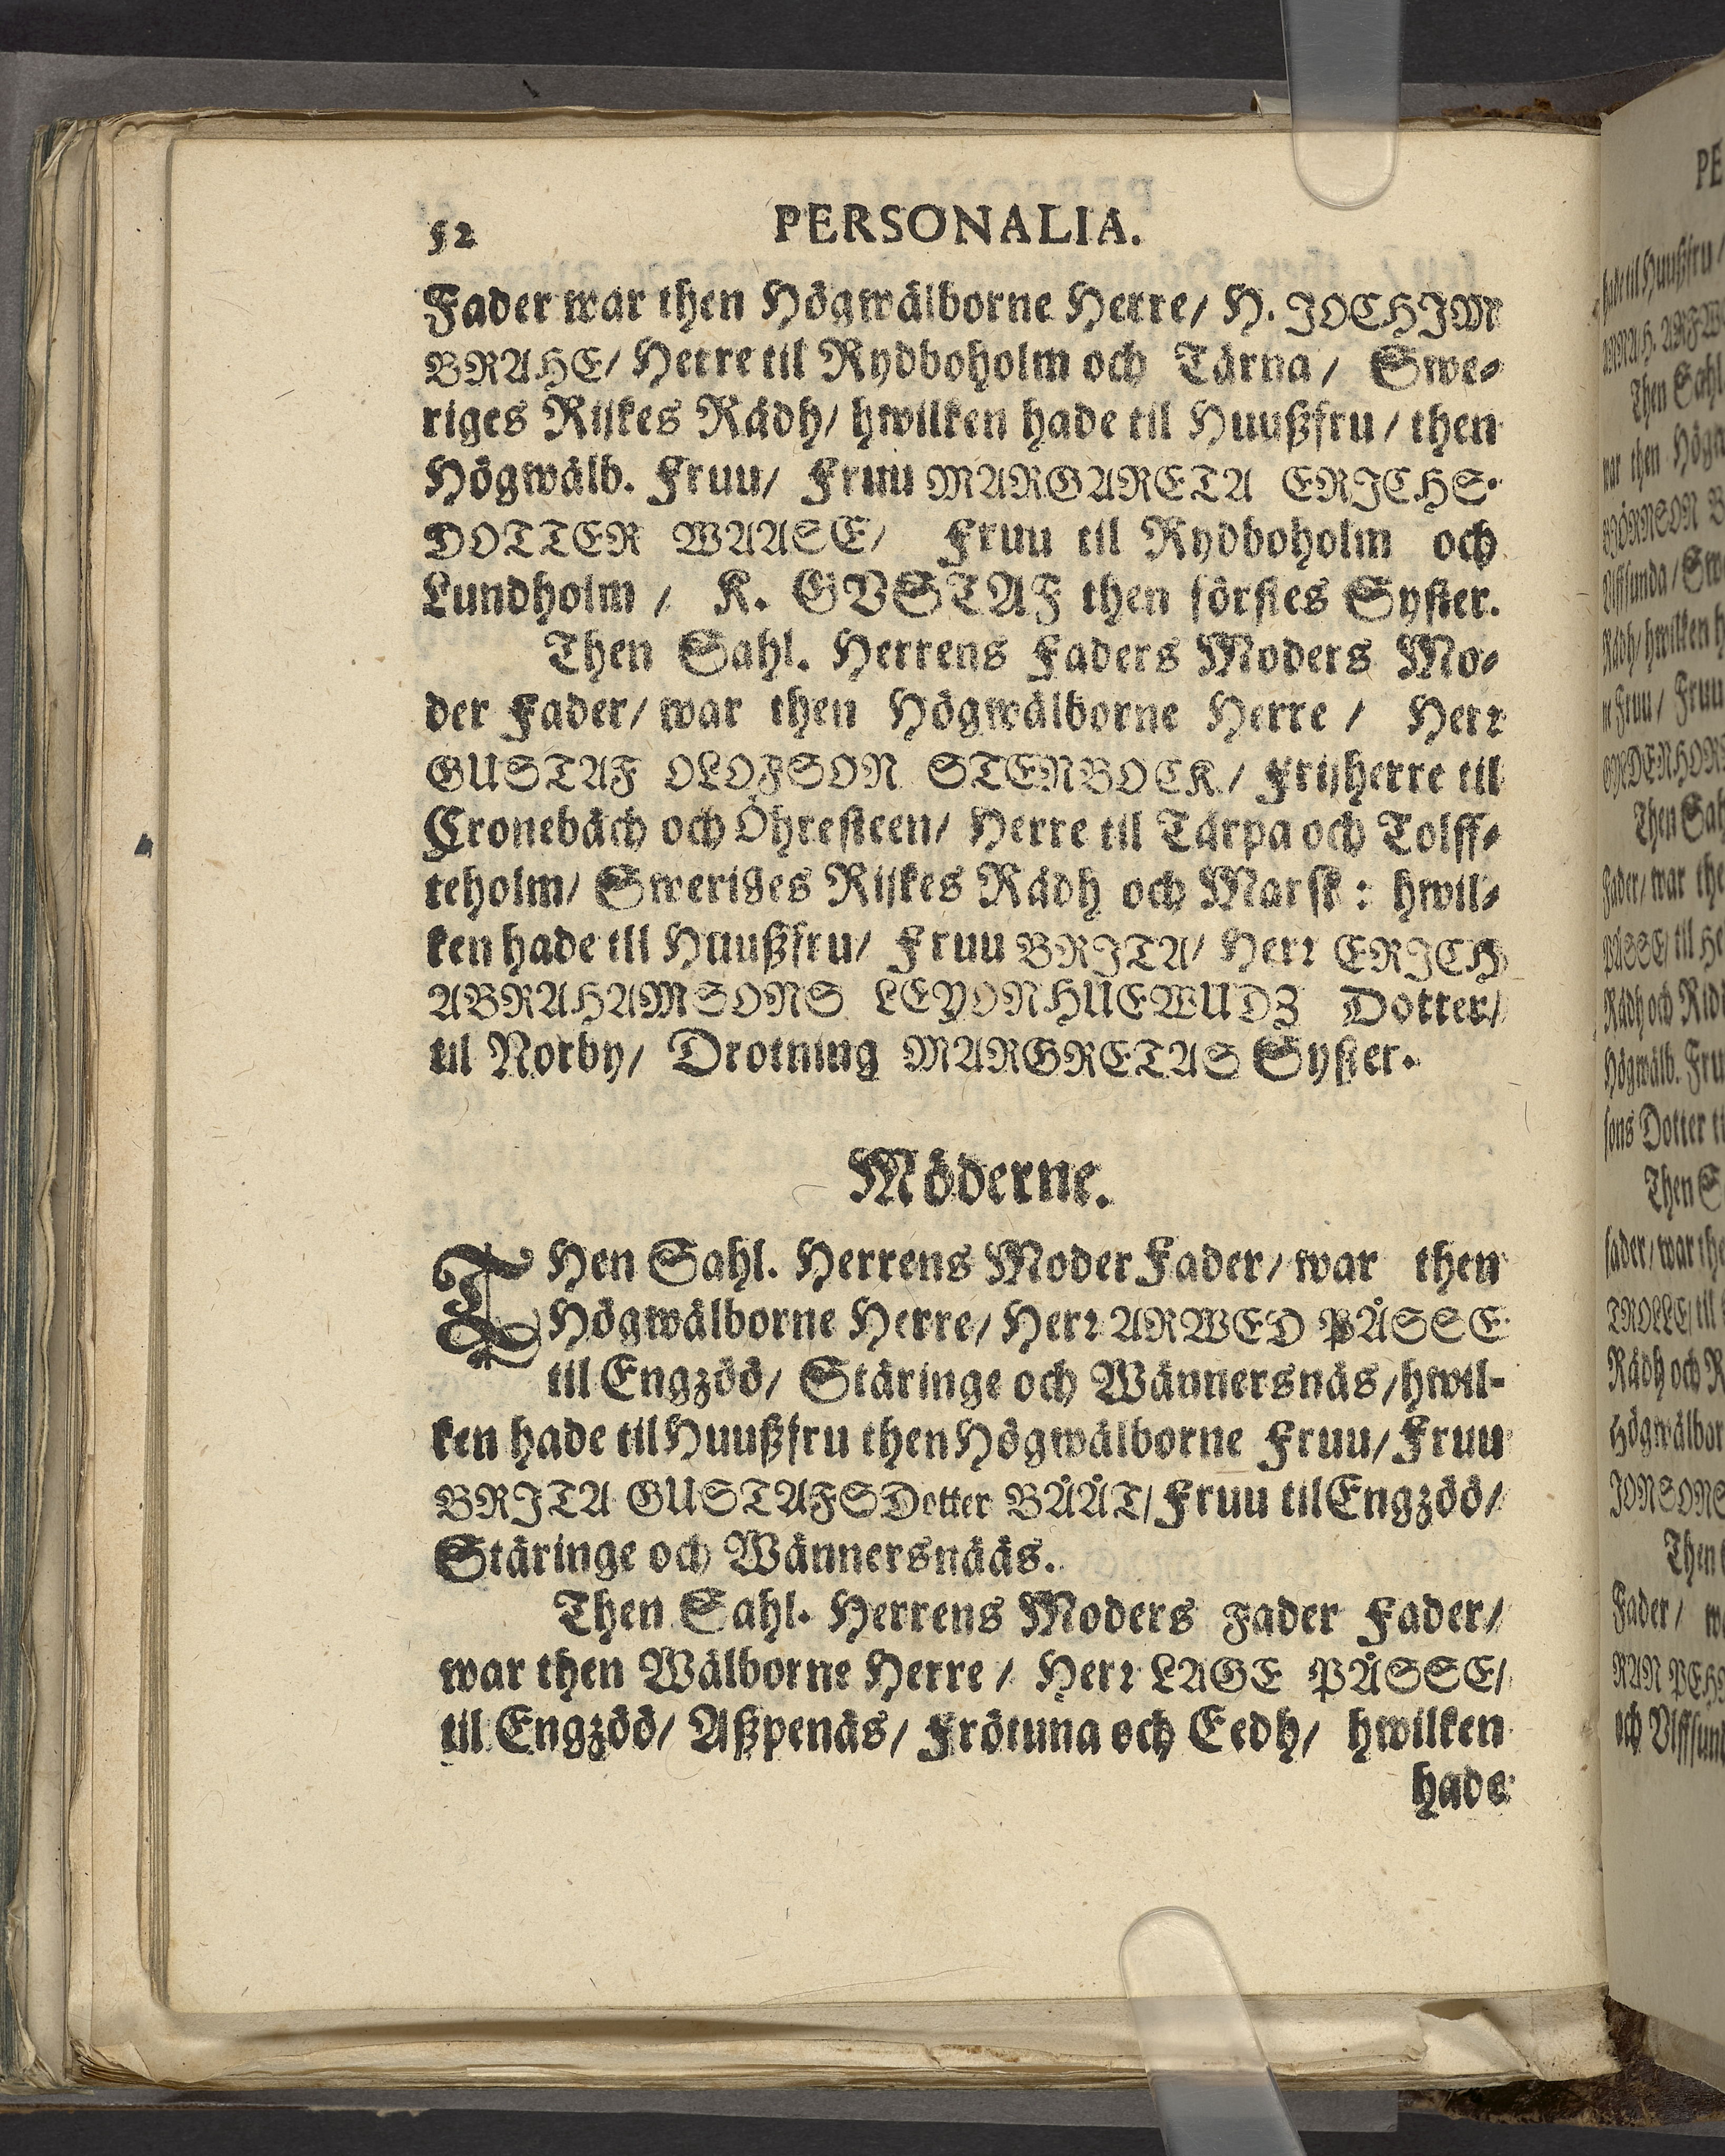 52 PERSONALIA.
Fader war then Högwälborne Herre/ H. JOCHJM
BRAHE/ Herre til Rydboholm och Tärna/ Swe⸗
riges Rijkes Rådh/ hwilken hade til Huußfru/ then
Högwälb. Fruu/ Fruu MARGARETA ERJCHS⸗
DOTTER WAASE/ Fruu til Rydboholm och
Lundholm/ K. GVSTAF then förstes Syster.
Then Sahl. Herrens Faders Moders Mo⸗
der Fader/ war then Högwälborne Herre/ Herr
GUSTAF OLOFSON STENBOCK/ Frijherre til
Cronebäch och Öhresteen/ Herre til Tärpa och Tolff⸗
teholm/ Sweriges Rijkes Rådh och Marsk: hwil⸗
ken hade till Huußfru/ Fruu BRJTA/ Herr ERJCH
ABRAHAMSONS LEYONHUEWUDZ Dotter/
til Norby/ Drotning MARGRETAS Syster.
Möderne.
THen Sahl. Herrens Moder Fader/ war then
Högwälborne Herre/ Herr ARWED PÅSSE
til Engzöö/ Stäringe och Wännersnäs/ hwil-
ken hade til Huußfru then Högwälborne Fruu/ Fruu
BRJTA GUSTAFSDotter BÅÅT/ Fruu til Engzöö/
Stäringe och Wännersnääs.
Then Sahl. Herrens Moders Fader Fader/
war then Wälborne Herre/ Herr LAGE PÅSSE/
til Engzöö/ Aßpenäs/ Frötuna och Eedh/ hwilken
hade